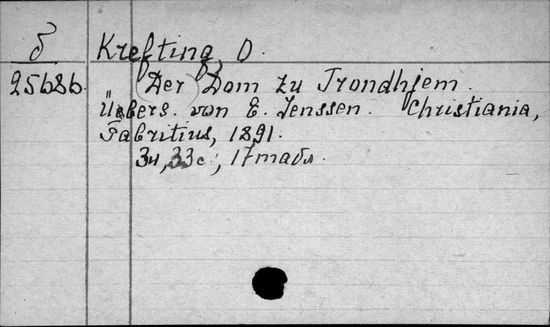 δ Krefting O.
25686. (Der) Dom zu Trondhjem.
Übers. von E. Jenssen. Christiania,
Fabritius, 1891.
34, 33 c., 17 табл.